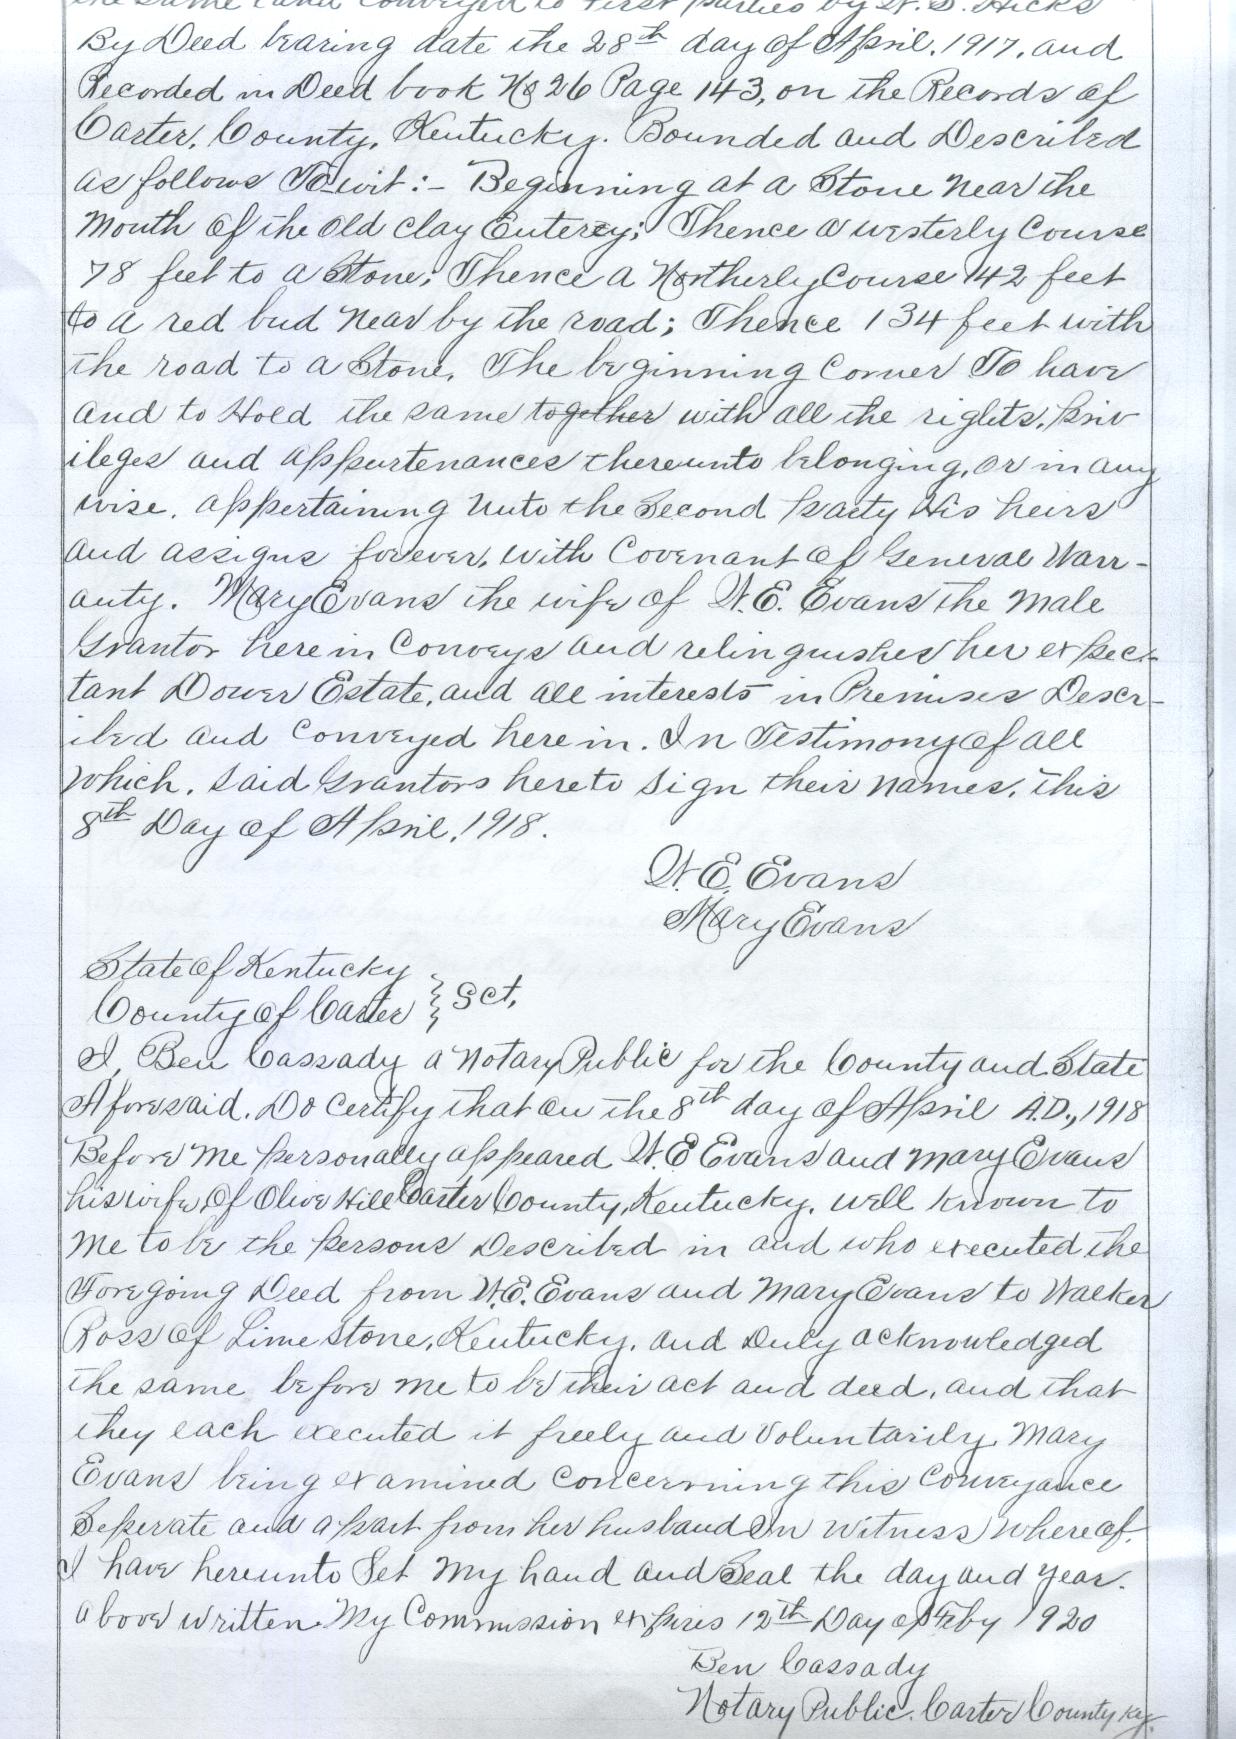 the same land conveyed to first parties by W. S. Hicks
By Deed bearing date the 28th day of April, 1917, and
Recorded in Deed book No 26 Page 143, on the Records of
Carter, County, Kentucky. Bounded and Described
as follows To wit:- Beginning at a Stone Near the
Mouth of the Old Clay Enterey; Thence a westerly Course
78 feet to a Stone; Thence a Northerly Course 142 feet
to a red bud Near by the road; Thence 134 feet with
the road to a Stone, The beginning Corner To have
and to Hold the same together with all the rights, priv
ileges and appurtenances thereunto belonging, or in any
wise, appertaining Unto the Second party His heirs
and assigns forever, with Covenant of General Warr-
anty. Mary Evans the wife of W.E. Evans the Male
Grantor herein Conveys and relinguishes her expec-
tant Dower Estate, and all interests in Premises Descr-
ibed and Conveyed herein. In Testimony of all
Which, said Grantors hereto sign their names, this
8th Day of April, 1918.
W. E. Evans
Mary Evans
State of Kentucky
County of Carter } Sct,
I, Ben Cassady a Notary Public for the County and State
Aforesaid. Do Certify that on the 8th day of April A.D., 1918
Before Me personally appeared W. E Evans and Mary Evans
his wife, Of Olive Hill Carter County, Kentucky, well known to
Me to be the persons Described in and who executed the
Foregoing Deed from W.E. Evans and Mary Evans to Walker
Ross of Lime Stone, Kentucky, and Duly acknowledged
the same before me to be their act and deed, and that
they each executed it freely and Voluntarily, Mary
Evans being examined Concerning this Conveyance
Seperate and apart from her husband In Witness Whereof,
I have hereunto Set My hand and Seal the day and Year.
above written. My Commission expires 12th Day of Feby 1920
Ben Cassady
Notary Public. Carter County Ky.